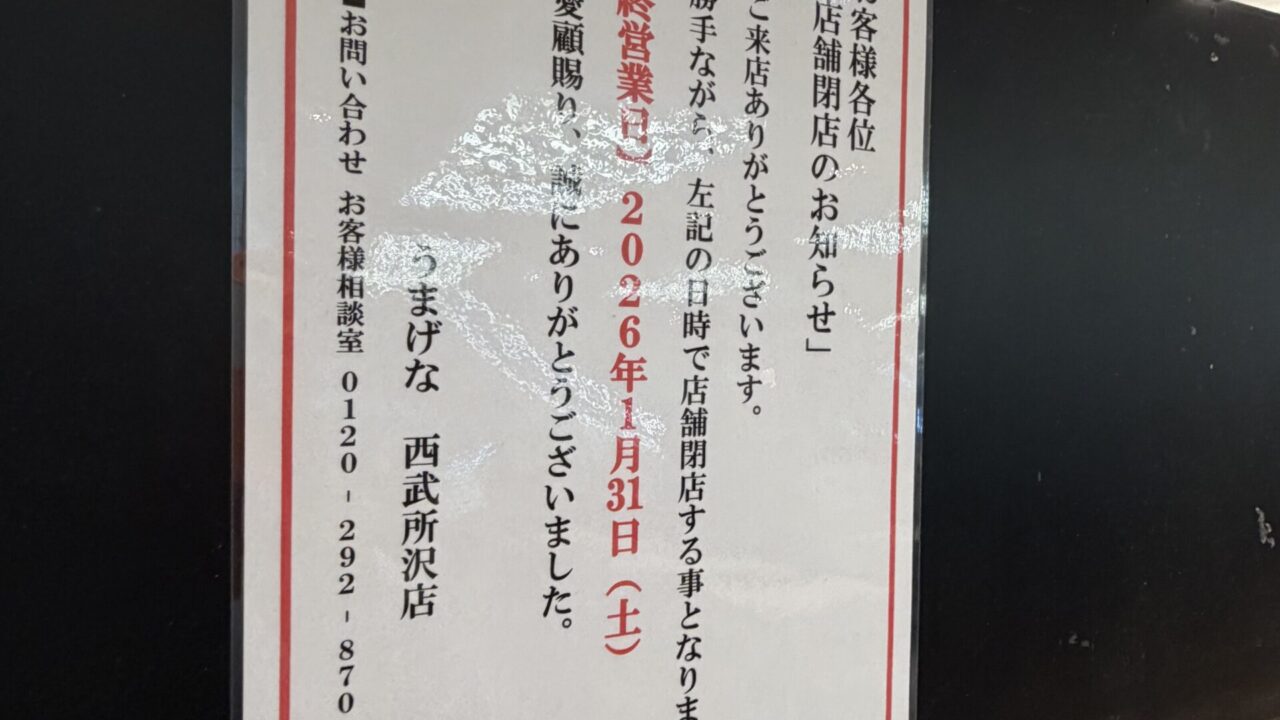 客様各位
店舗閉店のお知らせ」
ご来店ありがとうございます。
勝手ながら、左記の日時で店舗閉店する事となりま
終営業日】2026年1月31日（土）
愛顧賜り、誠にありがとうございました。
うまげな 西武所沢店
■お問い合わせ お客様相談室 0120-292-870